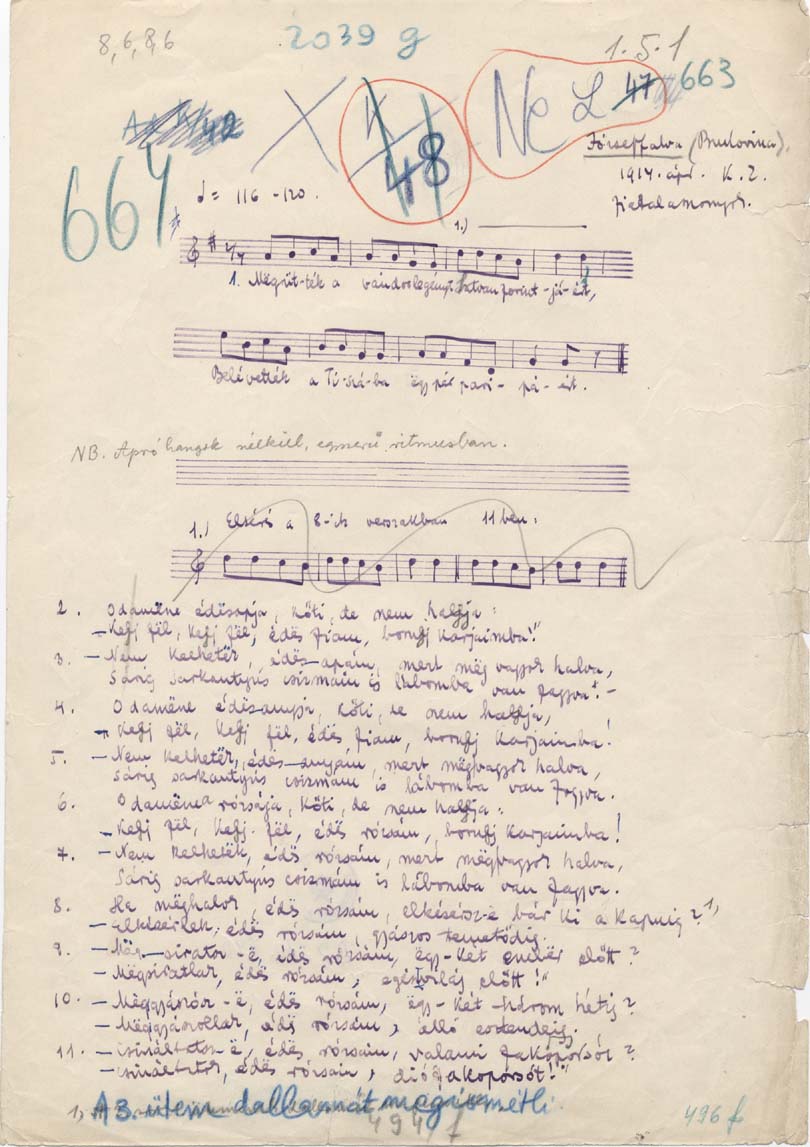 8,6,8,6
2039 g
1.5.1
Ne L 47 663
K
48
664
Józseffalva (Bukovina).
1914. ápr. K. Z.
fiatalasszonyok.
♩= 116 -120.
1.)
1. Mëgüt-ték a vándorlegényt hatvan forint-já-ért,
Belévették a Ti-szá-ba ëgy pár pari-pá-ért.
NB. Apró hangok nélkül, egyszerű ritmusban.
1.) Eltérés a 8-ik versszakban 11 ben:
2. Odamëne édësapja, kőti, de nem hallja:
– Kelj fël, kelj fël, édës fiam, borulj karjaimba!"
3. – Nem kelhetëk, édës apám, mert mëg vagyok halva,
Sárig sarkantyús csizmám is lábomba van fagyva". –
4. Odamëne édësanyja, kőti, de nem hallja,
– Kelj fël, kelj fël, édës fiam, borulj karjaimba!
5. – Nem kelhetëk, édës–anyám, mert mëgvagyok halva,
Sárig sarkantyús csizmám is lábomba van fagyva.
6. Odamëne rózsája, kőti, de nem hallja:
– Kelj fël, kelj fël, édës rózsám, borulj karjaimba!
7. – Nem kelhetëk, édës rózsám, mert mëgvagyok halva,
Sárig sarkantyús csizmám is lábomba van fagyva.
8. Ha mëghalok, édës rózsám, elkésérsz-ë bár ki a kapuig? 1)
– Elkésérlek, édës rózsám, gyászos temetődig.
9. – Mëg–siratsz-ë, édës rózsám, ëgy-két embër előtt?
– Mëgsiratlak, édës rózsám, egész világ előtt!"
10. – Mëggyászosz-ë, édës rózsám, ëgy-két-három hétig?
– Mëggyászollak, édës rózsám, álló esztendeig.
11. – Csináltatsz-ë, édës rózsám, valami fakoporsót?
– Csináltatok, édës rózsám, diófakoporsót!"
1, A 3. ütem dallamát megismétli.
494 f
496 f